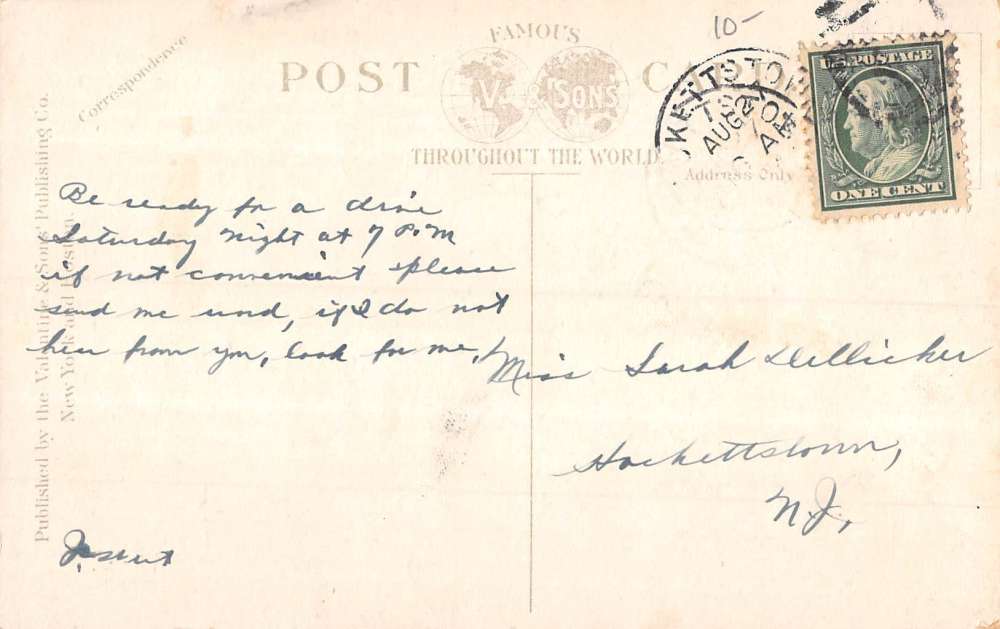 10-
FAMOUS
POST CARD
V. & SONS
THROUGHOUT THE WORLD.
Address Only
U.S. POSTAGE
ONE CENT
AUG
Correspondence
Published by the Valentine & Sons' Publishing Co.
New York and Boston.
Be ready for a drive
Saturday night at 7 P.M
if not convenient please
send me word, if I do not
hear from you, look for me,
Miss Sarah Dellicker
Hackettstown,
N.J.